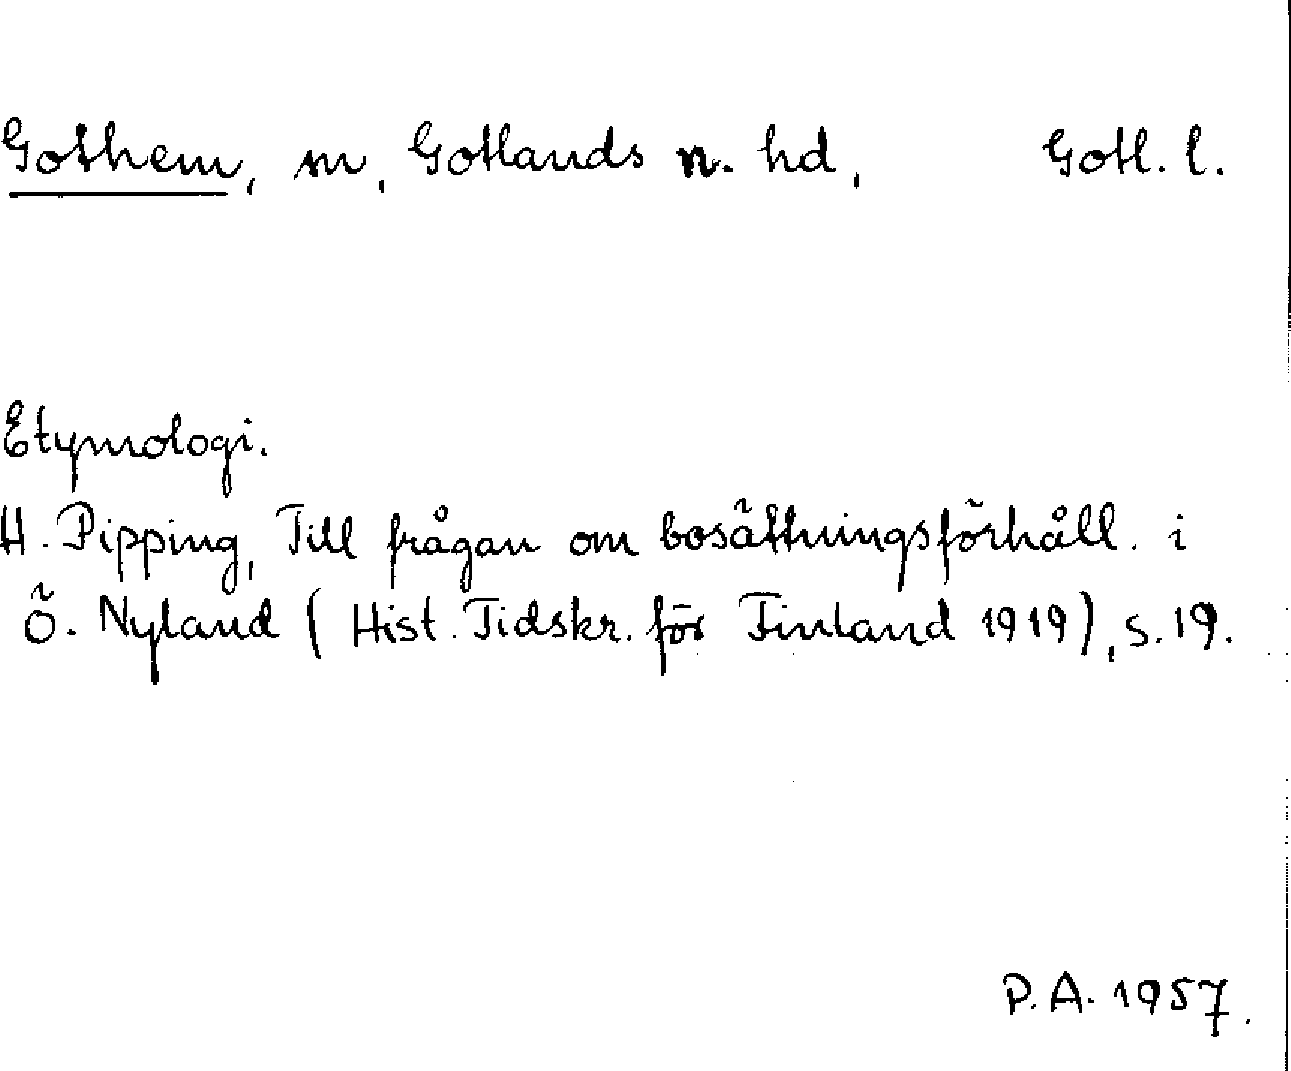 Gothem, sn, Gotlands n. hd, Gotl. l.
Etymologi.
H. Pipping, Till frågan om bosättningsförhåll. i
Ö. Nyland (Hist. Tidskr. för Finland 1919), s. 19.
P. A. 1957.